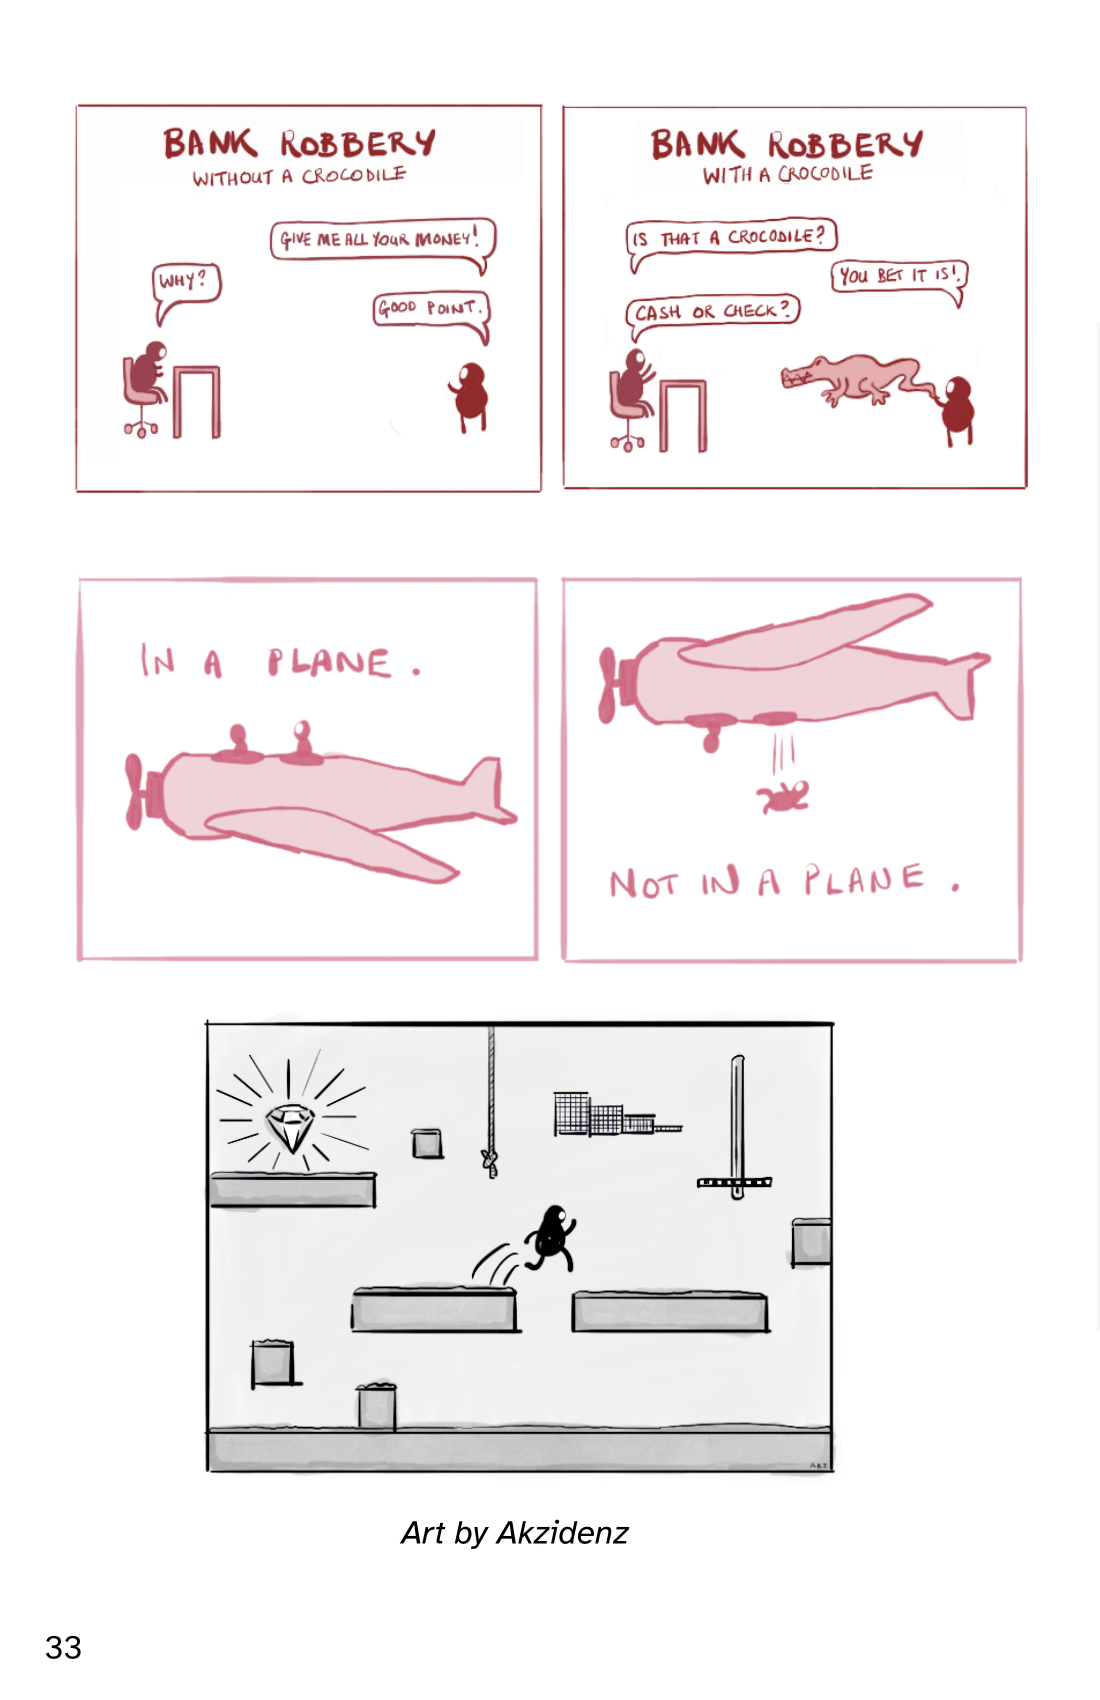 BANK ROBBERY
WITHOUT A CROCODILE
GIVE ME ALL YOUR MONEY!
WHY?
GOOD POINT.
BANK ROBBERY
WITH A CROCODILE
IS THAT A CROCODILE?
YOU BET IT IS!
CASH OR CHECK?
IN A PLANE.
NOT IN A PLANE.
AKZ
Art by Akzidenz
33